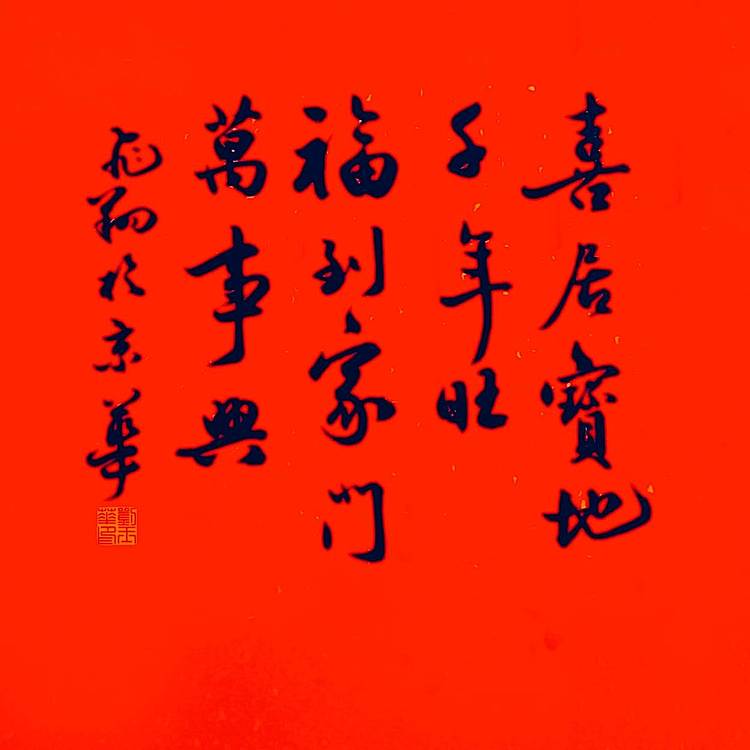 喜居寶地
千年旺
福到家门
萬事興
飛翔於京華